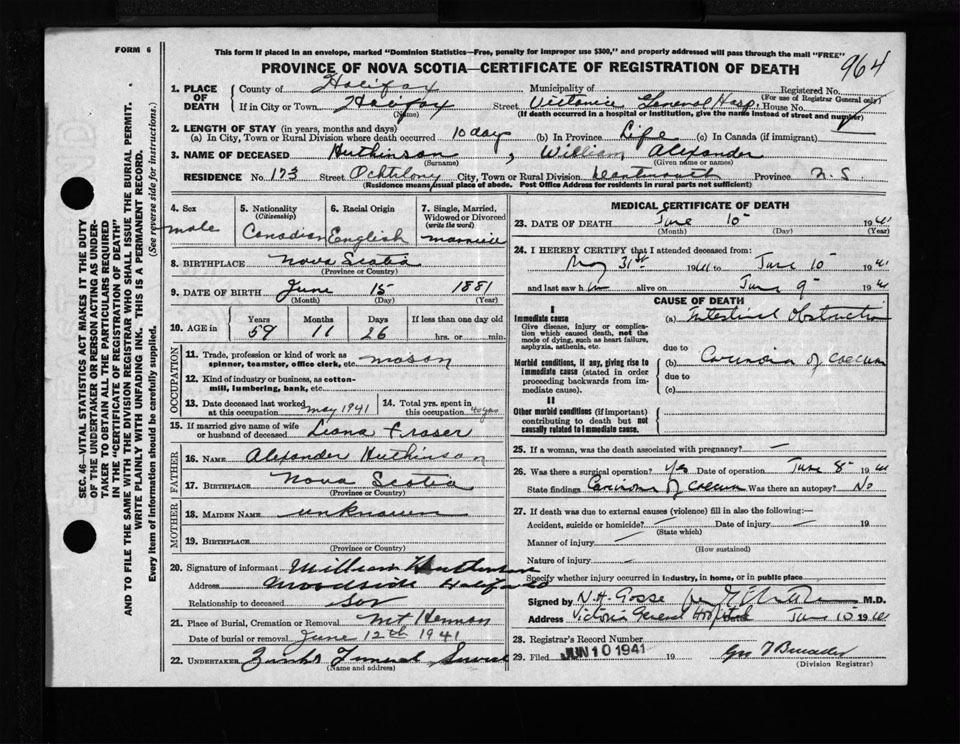 FORM 6
This form if placed in an envelope, marked "Dominion Statistics—Free, penalty for improper use $300," and properly addressed will pass through the mail "FREE"
PROVINCE OF NOVA SCOTIA—CERTIFICATE OF REGISTRATION OF DEATH
964
SEC. 46—VITAL STATISTICS ACT MAKES IT THE DUTY
OF THE UNDERTAKER OR PERSON ACTING AS UNDER-
TAKER TO OBTAIN ALL THE PARTICULARS REQUIRED
IN THE "CERTIFICATE OF REGISTRATION OF DEATH"
AND TO FILE THE SAME WITH THE DIVISION REGISTRAR WHO SHALL ISSUE THE BURIAL PERMIT.
WRITE PLAINLY WITH UNFADING INK. THIS IS A PERMANENT RECORD.
Every item of information should be carefully supplied. (See reverse side for instructions.)
1. PLACE OF DEATH
County of Halifax Municipality of Registered No.
(For use of Registrar General only)
If in City or Town Halifax Street Victoria General Hosp. House No.
(Name) (If death occurred in a hospital or institution, give the name instead of street and number)
2. LENGTH OF STAY (in years, months and days)
(a) In City, Town or Rural Division where death occurred 10 days (b) In Province Life (c) In Canada (if immigrant)
3. NAME OF DECEASED Huthinson, William Alexander
(Surname) (Given name or names)
RESIDENCE No. 173 Street City, Town or Rural Division Province N.S.
(Residence means usual place of abode. Post Office Address for residents in rural parts not sufficient)
4. Sex
male
5. Nationality
(Citizenship)
Canadian
6. Racial Origin
English
7. Single, Married, Widowed or Divorced
(write the word)
married
8. BIRTHPLACE Nova Scotia
(Province or Country)
9. DATE OF BIRTH June 15 1881
(Month) (Day) (Year)
10. AGE in Years Months Days If less than one day old
59 11 26 hrs. or min.
OCCUPATION
11. Trade, profession or kind of work as spinner, teamster, office clerk, etc. mason
12. Kind of industry or business, as cotton-mill, lumbering, bank, etc.
13. Date deceased last worked at this occupation May 1941
14. Total yrs. spent in this occupation 40 yrs
15. If married give name of wife or husband of deceased Leona Fraser
FATHER
16. NAME Alexander Huthinson
17. BIRTHPLACE Nova Scotia
(Province or Country)
MOTHER
18. MAIDEN NAME unknown
19. BIRTHPLACE
(Province or Country)
20. Signature of informant William Huthinson
Address Woodside Halifax Co
Relationship to deceased Son
21. Place of Burial, Cremation or Removal Mt Hermon
Date of burial or removal June 12th 1941
22. UNDERTAKER Funeral Service
(Name and address)
MEDICAL CERTIFICATE OF DEATH
23. DATE OF DEATH June 10 1941
(Month) (Day) (Year)
24. I HEREBY CERTIFY that I attended deceased from:
May 31st 1941 to June 10 1941
and last saw him alive on June 9 1941
CAUSE OF DEATH
I
Immediate cause
Give disease, injury or complication which caused death, not the mode of dying, such as heart failure, asphyxia, asthenia, etc.
(a) Intestinal Obstruction
due to
Morbid conditions, if any, giving rise to immediate cause (stated in order proceeding backwards from immediate cause).
(b) Carcinoma of caecum
due to
(c)
II
Other morbid conditions (if important) contributing to death but not causally related to immediate cause.
25. If a woman, was the death associated with pregnancy? —
26. Was there a surgical operation? Yes Date of operation June 8 1941
State findings Carcinoma of caecum Was there an autopsy? No
27. If death was due to external causes (violence) fill in also the following:—
Accident, suicide or homicide? — Date of injury — 19
(State which)
Manner of injury —
(How sustained)
Nature of injury —
Specify whether injury occurred in industry, in home, or in public place
Signed by N.H. Gosse per M.D.
Address Victoria General Hospital June 10 1941
28. Registrar's Record Number
29. Filed JUN 10 1941 19
(Division Registrar)